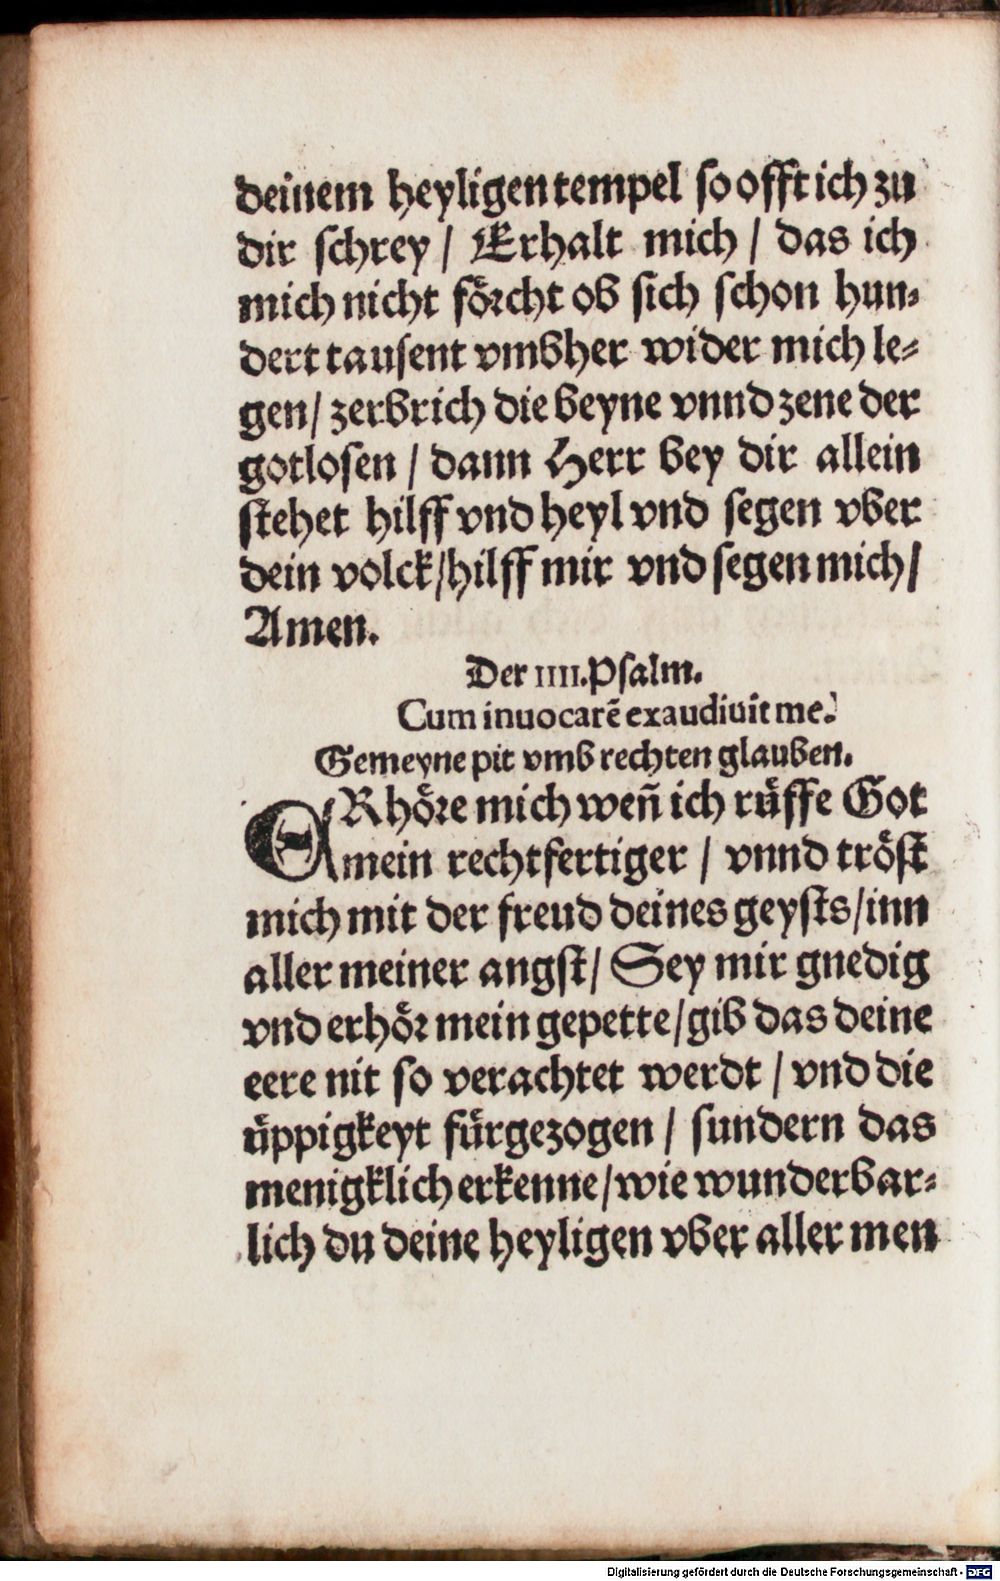 deinem heyligen tempel so offt ich zu
dir schrey / Erhalt mich / das ich
mich nicht förcht ob sich schon hun⸗
dert tausent vmbher wider mich le⸗
gen / zerbrich die beyne vnnd zene der
gotlosen / dann Herr bey dir allein
stehet hilff vnd heyl vnd segen vber
dein volck / hilff mir vnd segen mich /
Amen.
Der IIII. Psalm.
Cum inuocarē exaudiuit me.
Gemeyne pit vmb rechten glauben.
ERhöre mich weñ ich rüffe Got
mein rechtfertiger / vnnd tröst
mich mit der freud deines geysts / inn
aller meiner angst / Sey mir gnedig
vnd erhör mein gepette / gib das deine
eere nit so verachtet werdt / vnd die
üppigkeyt fürgezogen / sundern das
menigklich erkenne / wie wunderbar⸗
lich du deine heyligen vber aller men
Digitalisierung gefördert durch die Deutsche Forschungsgemeinschaft - DFG